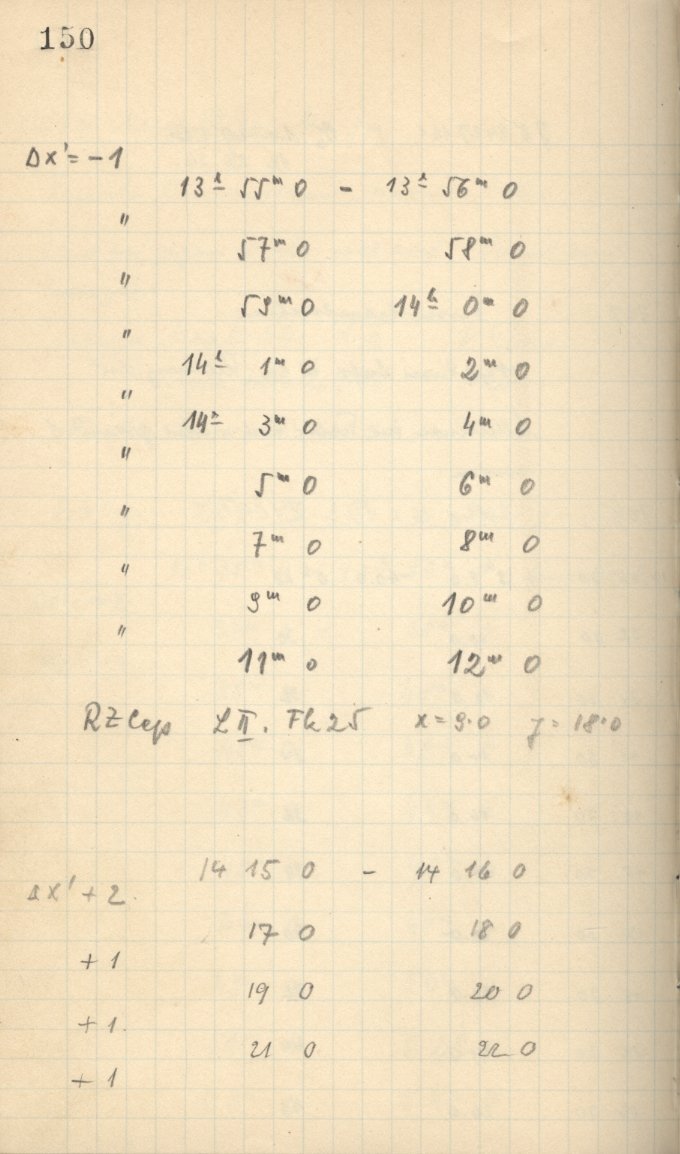 150
Δx' = -1
13h 55m 0 - 13h 56m 0
"
57m 0 58m 0
"
59m 0 14h 0m 0
"
14h 1m 0 2m 0
"
14h 3m 0 4m 0
"
5m 0 6m 0
"
7m 0 8m 0
"
9m 0 10m 0
"
11m 0 12m 0
RZ Cep L II. Fk 25 x = 9.0 y = 18.0
14 15 0 - 14 16 0
Δx' + 2.
17 0 18 0
+ 1
19 0 20 0
+ 1.
21 0 22 0
+ 1